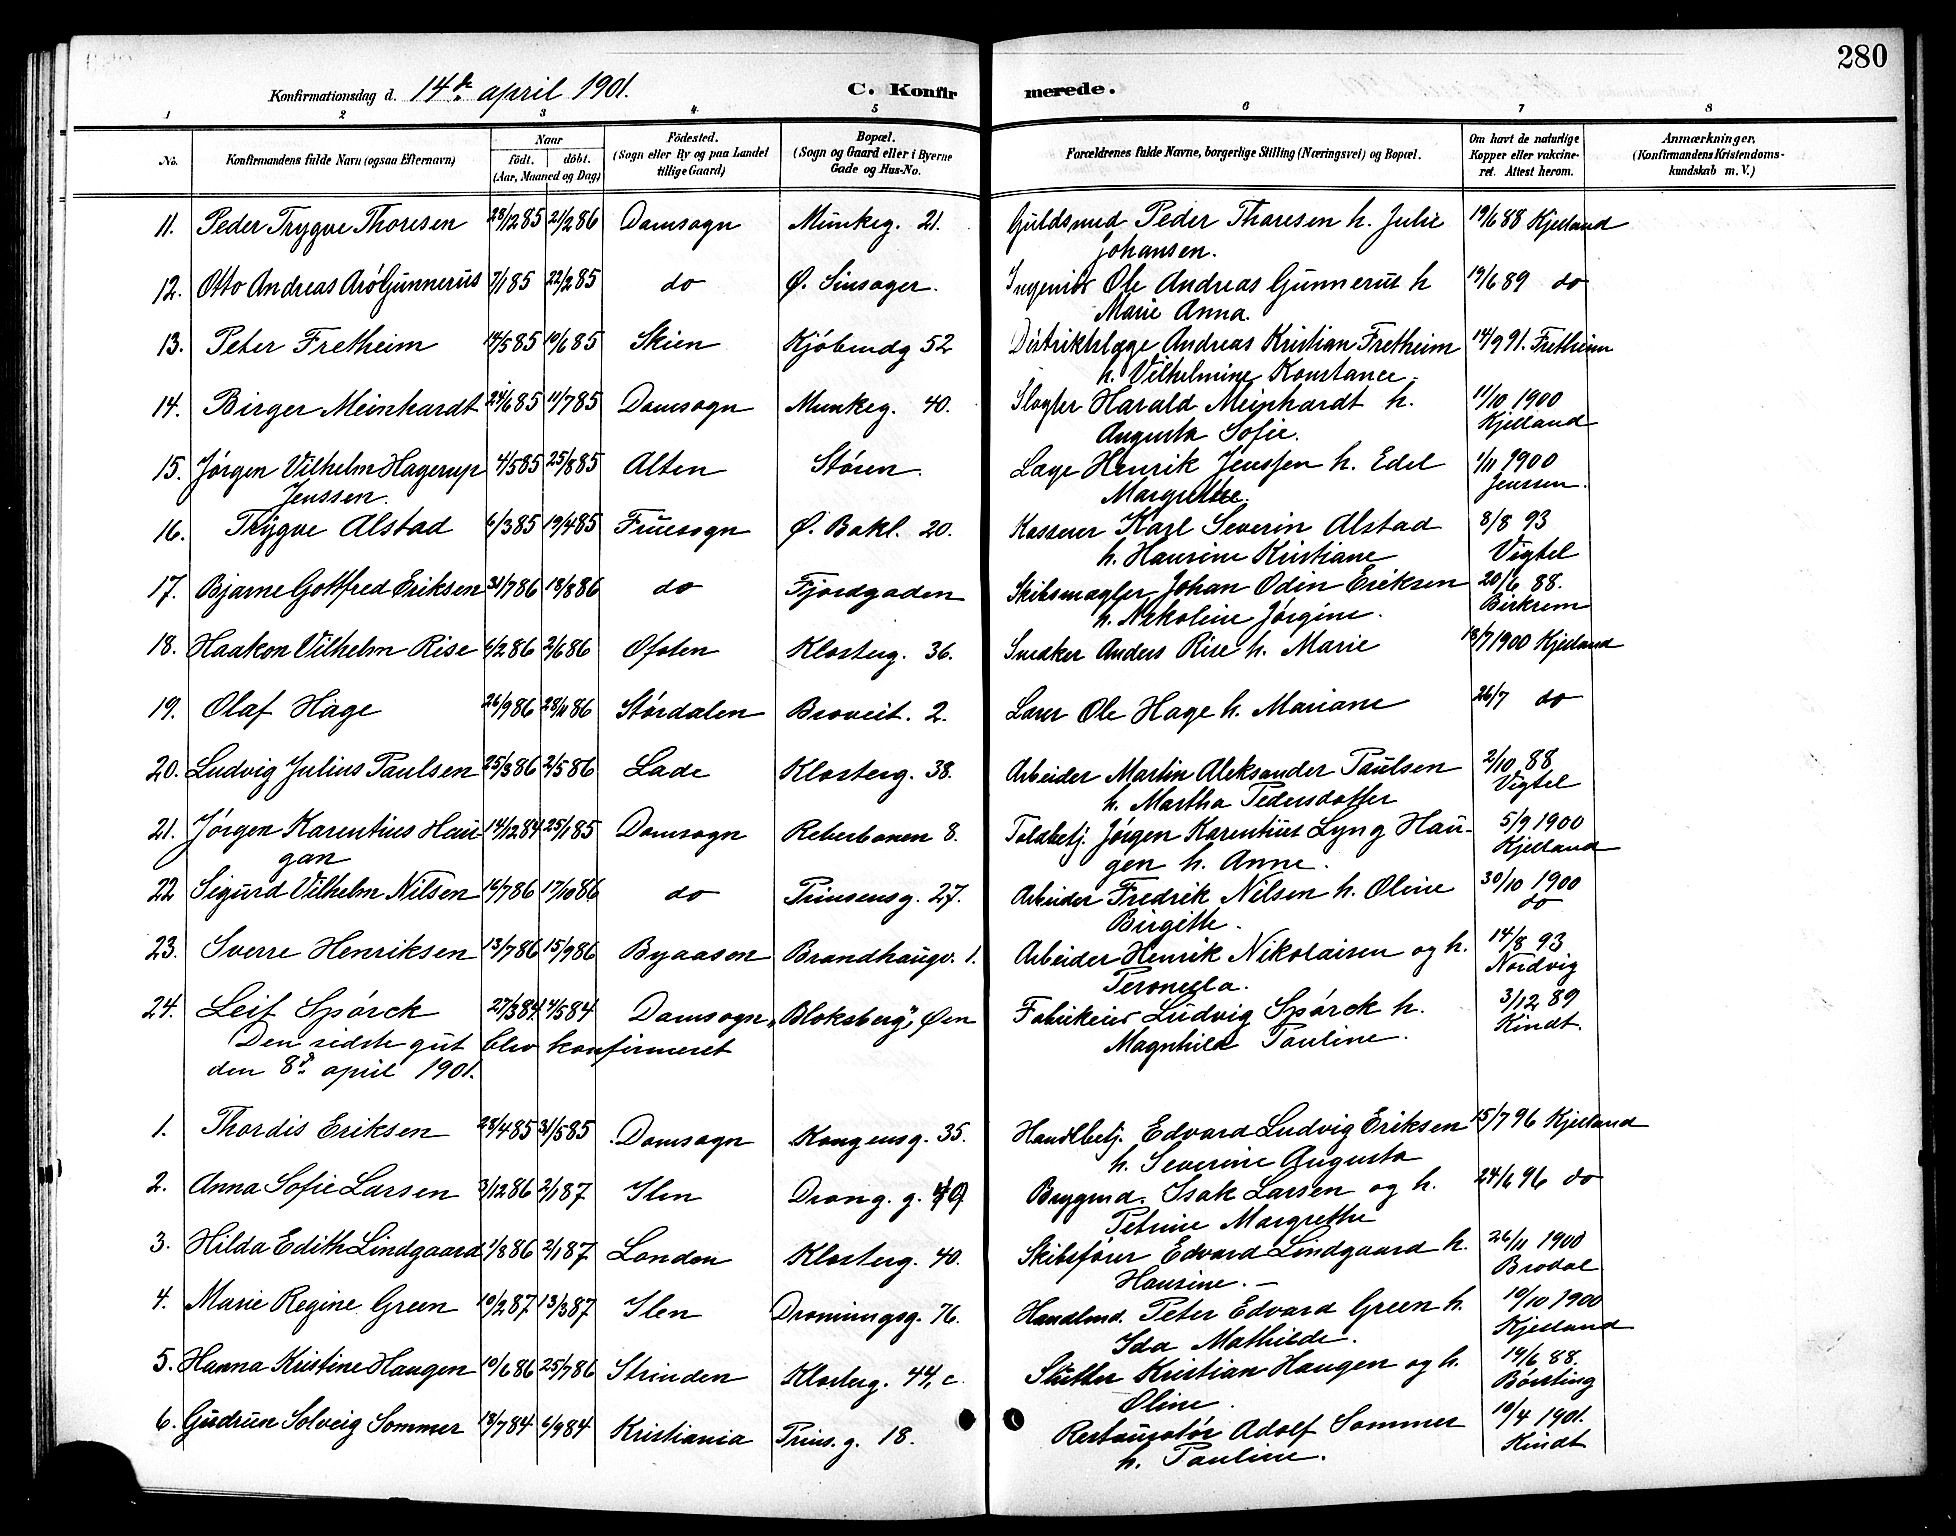 280
Konfirmationsdag d. 14de april 1901.
C. Konfirmerede.
1 2 3 4 5 6 7 8
No. Konfirmandens fulde Navn (ogsaa Efternavn) Naar födt. döbt. (Aar, Maaned og Dag) Födested. (Sogn eller By og paa Landet tillige Gaard) Bopæl. (Sogn og Gaard eller i Byerne Gade og Hus-No. Forældrenes fulde Navne, borgerlige Stilling (Næringsvei) og Bopæl. Om havt de naturlige Kopper eller vakcineret. Attest herom. Anmærkninger, (Konfirmandens Kristendomskundskab m. V.)
11. Peder Trygve Thoresen 28/12 85 21/2 86 Domsogn Munkeg. 21. Guldsmed Peder Thoresen h. Julie 19/6 88 Kjelland
Johansen.
12. Otto Andreas Arö Gunnerus 7/1 85 22/2 85 do Ø. Sinsager. Ingeniör Ole Andreas Gunnerus h 19/6 89 do
Marie Anna.
13. Peter Fretheim 14/5 85 10/6 85 Skien Kjöbmdg 52 Distriktslæge Andreas Kristian Fretheim 14/9 91. Fretheim
h. Vilhelmine Konstance.
14. Birger Meinhardt 24/6 85 11/7 85 Domsogn Munkeg. 40. Slagter Harald Meinhardt h. 11/10 1900
Augusta Sofie. Kjelland
15. Jørgen Vilhelm Hagerup 4/5 85 25/8 85 Alten Støren. Læge Henrik Jenssen h. Edel 1/11 1900
Jenssen. Margrethe. Jenssen.
16. Trygve Alstad 6/3 85 19/4 85 Fruesogn Ø. Bakl. 20. Kasserer Karl Severin Alstad 8/8 93
h. Hansine Kristiane Vigtel
17. Bjarne Gottfred Eriksen 31/7 86 18/8 86 do Fjordgaden Skibsmægler Johan Odin Eriksen 20/6 88.
h. Nikoline Jørgine. Birkrem
18. Haakon Vilhelm Rise 6/2 86 2/6 86 Ofoten Klosterg. 36. Snedker Anders Rise h. Marie 18/7 1900 Kjelland
19. Olaf Hage 26/9 86 28/11 86 Størdalen Broveit. 2. Lærer Ole Hage h. Mariane 26/7 do
20. Ludvig Julius Paulsen 25/3 86 2/5 86 Lade Klosterg. 38. Arbeider Martin Aleksander Paulsen 2/10 88
h. Martha Pedersdatter Vigtel
21. Jørgen Karentius Hau- 14/12 84 25/1 85 Domsogn Reberbanen 8. Toldbetj. Jørgen Karentius Lyng Hau- 5/9 1900
gan gen h. Anne. Kjelland
22 Sigurd Vilhelm Nilsen 16/7 86 17/10 86 do Prinsensg. 27. Arbeider Fredrik Nilsen h. Oline 30/10 1900
Birgitte. do
23. Sverre Henriksen 13/7 86 15/9 86 Byaasen Brandhaugv. 1. Arbeider Henrik Nikolaisen og h. 14/8 93
Peronella. Nordvig
24. Leif Spörck 27/3 84 4/5 84 Domsogn "Bloksberg", Øen Fabrikeier Ludvig Spörck h. 3/12 89
Magnhild Pauline. Kindt.
Den sidste gut blev konfirmeret
den 8de april 1901.
1. Thordis Eriksen 28/4 85 31/5 85 Domsogn Kongensg. 35. Handlbetj. Edvard Ludvig Eriksen 15/7 96 Kjelland
h. Severine Augusta
2. Anna Sofie Larsen 3/12 86 2/1 87 Ilen Drong. g. 40 Brygmd. Isak Larsen og h. 24/6 96 do
Petrine Margrethe
3. Hilda Edith Lindgaard 1/8 86 2/1 87 London Klosterg. 40. Skibsfører Edvard Lindgaard h. 26/11 1900
Hansine. – Brodal
4. Marie Regine Green 19/2 87 13/3 87 Ilen Dronningsg. 76. Handlmd. Peter Edvard Green h. 19/10 1900
Ida Mathilde. Kjelland
5. Hanna Kristine Haugen 10/6 86 25/7 86 Strinden Klosterg. 44, c. Kristian Haugen og h. 19/6 88.
Oline. Børsting
6. Gudrun Solveig Sommer 18/7 84 6/9 84 Kristiania Prins. g. 18. Restauratör Adolf Sommer 19/4 1901.
h. Pauline. Kindt